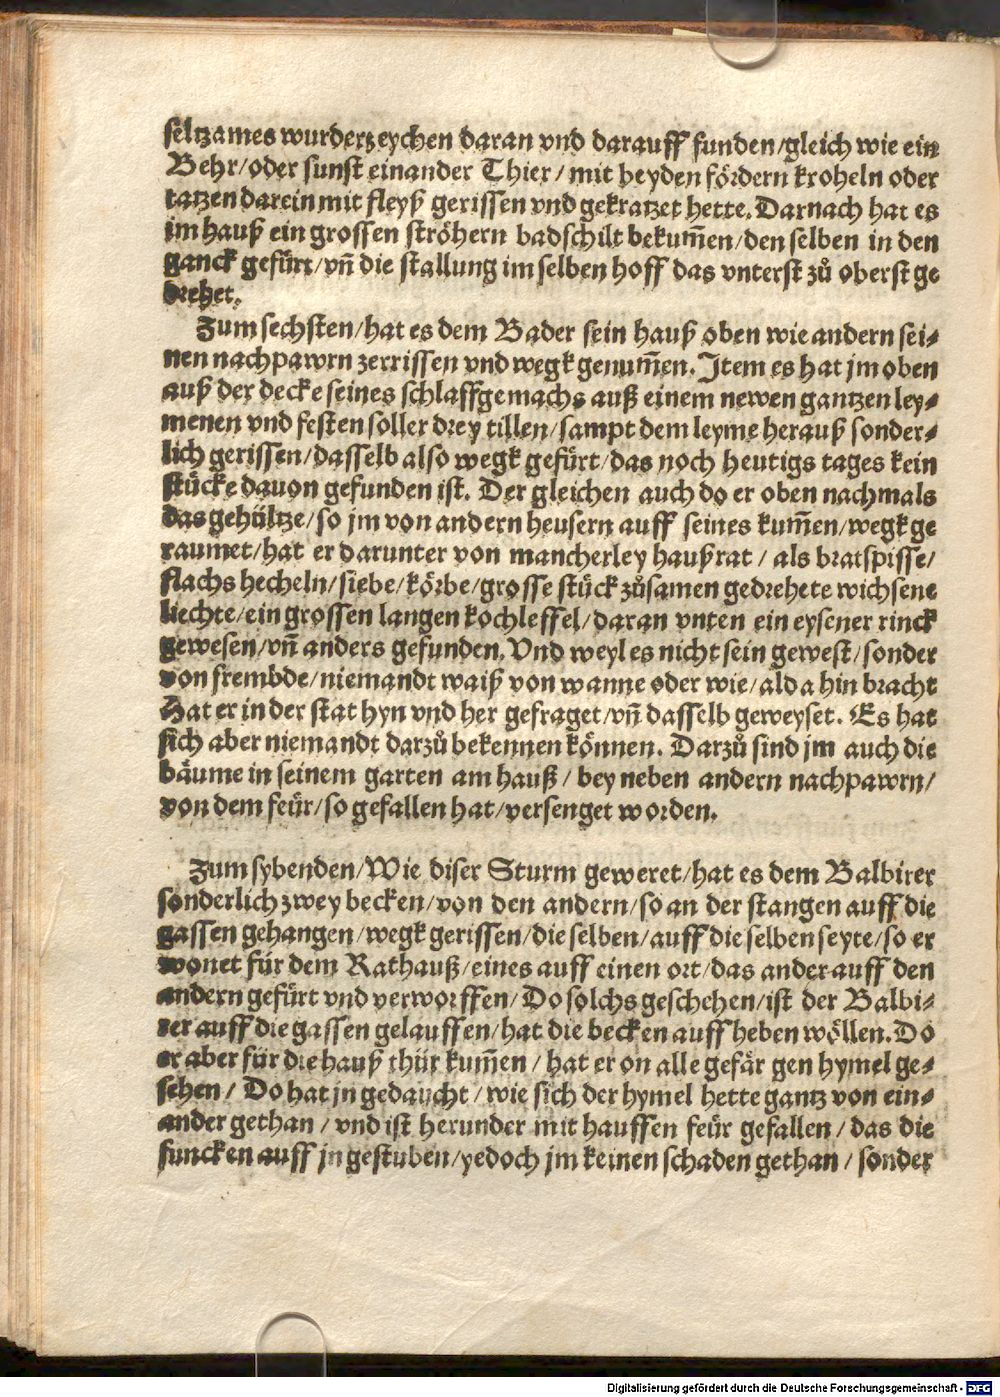 seltzames wurdertzeychen daran vnd darauff funden/gleich wie ein
Behr/oder sunst einander Thier/mit beyden fördern kroheln oder
tatzen darein mit fleyß gerissen vnd gekratzet hette. Darnach hat es
im hauß ein grossen ströhern badschilt bekum̃en/den selben in den
ganck gefürt/vñ die stallung im selben hoff das vnterst zů oberst ge
drehet.
Zum sechsten/hat es dem Bader sein hauß oben wie andern sei⸗
nen nachpawrn zerrissen vnd wegk genum̃en. Item es hat jm oben
auß der decke seines schlaffgemachs auß einem newen gantzen ley⸗
menen vnd festen soller drey tillen/sampt dem leyme herauß sonder⸗
lich gerissen/dasselb also wegk gefürt/das noch heutigs tages kein
stücke dauon gefunden ist. Der gleichen auch do er oben nachmals
das gehültze/so jm von andern heusern auff seines kum̃en/wegk ge
raumet/hat er darunter von mancherley haußrat/als bratspisse/
flachs hecheln/siebe/körbe/grosse stück zůsamen gedrehete wichsene
liechte/ein grossen langen kochleffel/daran vnten ein eysener rinck
gewesen/vñ anders gefunden. Vnd weyl es nicht sein gewest/sonder
von frembde/niemandt waiß von wanne oder wie/alda hin bracht
Hat er in der stat hyn vnd her gefraget/vñ dasselb geweyset. Es hat
sich aber niemandt darzů bekennen können. Darzů sind jm auch die
bäume in seinem garten am hauß/bey neben andern nachpawrn/
von dem feür/so gefallen hat/versenget worden.
Zum sybenden/Wie diser Sturm geweret/hat es dem Balbirer
sonderlich zwey becken/von den andern/so an der stangen auff die
gassen gehangen/wegk gerissen/die selben/auff die selben seyte/so er
wonet für dem Rathauß/eines auff einen ort/das ander auff den
andern gefürt vnd verworffen/Do solchs geschehen/ist der Balbi⸗
rer auff die gassen gelauffen/hat die becken auff heben wöllen. Do
er aber für die hauß thür kum̃en/hat er on alle gefär gen hymel ge⸗
sehen/Do hat jn gedaucht/wie sich der hymel hette gantz von ein⸗
ander gethan/vnd ist herunder mit hauffen feür gefallen/das die
funcken auff jn gestuben/yedoch jm keinen schaden gethan/sonder
Digitalisierung gefördert durch die Deutsche Forschungsgemeinschaft - DFG